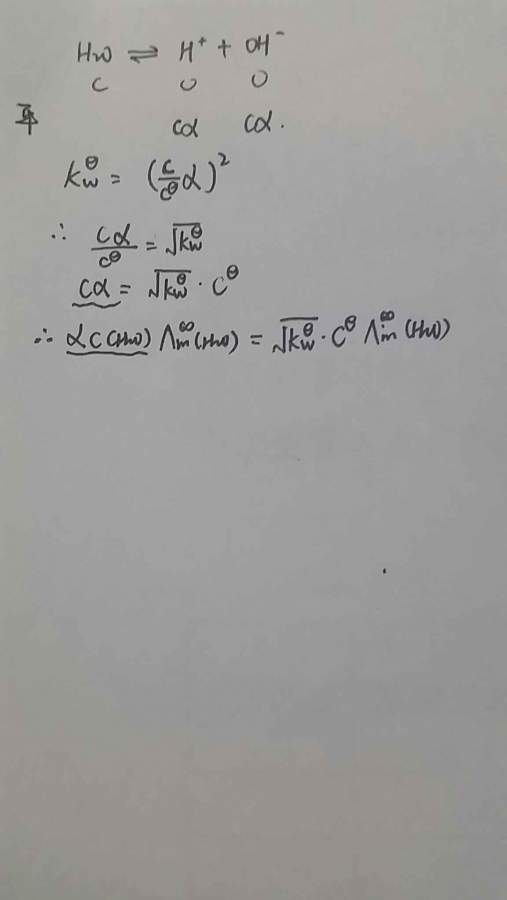 H₂O ⇌ H⁺ + OH⁻
C 0 0
平 cα cα.
K_w^θ = (c/c^θ α)²
∴ cα/c^θ = √K_w^θ
cα = √K_w^θ · C^θ
∴ αC(H₂O) Λ_m^∞(H₂O) = √K_w^θ · C^θ Λ_m^∞(H₂O)